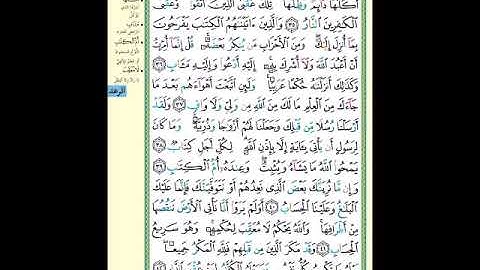 أُكُلُهَا دَآئِمٌ وَظِلُّهَا ۚ تِلْكَ عُقْبَى ٱلَّذِينَ ٱتَّقَوا۟ ۖ وَّعُقْبَى
ٱلْكَٰفِرِينَ ٱلنَّارُ ﴿٣٥﴾ وَٱلَّذِينَ ءَاتَيْنَٰهُمُ ٱلْكِتَٰبَ يَفْرَحُونَ
بِمَآ أُنزِلَ إِلَيْكَ ۖ وَمِنَ ٱلْأَحْزَابِ مَن يُنكِرُ بَعْضَهُۥ ۚ قُلْ إِنَّمَآ أُمِرْتُ
أَنْ أَعْبُدَ ٱللَّهَ وَلَآ أُشْرِكَ بِهِۦٓ ۚ إِلَيْهِ أَدْعُوا۟ وَإِلَيْهِ مَـَٔابِ ﴿٣٦﴾
وَكَذَٰلِكَ أَنزَلْنَٰهُ حُكْمًا عَرَبِيًّا ۚ وَلَئِنِ ٱتَّبَعْتَ أَهْوَآءَهُم بَعْدَ مَا
جَآءَكَ مِنَ ٱلْعِلْمِ مَا لَكَ مِنَ ٱللَّهِ مِن وَلِىٍّ وَلَا وَاقٍ ﴿٣٧﴾ وَلَقَدْ
أَرْسَلْنَا رُسُلًا مِّن قَبْلِكَ وَجَعَلْنَا لَهُمْ أَزْوَٰجًا وَذُرِّيَّةً ۚ وَمَا كَانَ
لِرَسُولٍ أَن يَأْتِىَ بِـَٔايَةٍ إِلَّا بِإِذْنِ ٱللَّهِ ۗ لِكُلِّ أَجَلٍ كِتَابٌ ﴿٣٨﴾
يَمْحُوا۟ ٱللَّهُ مَا يَشَآءُ وَيُثْبِتُ ۖ وَعِندَهُۥٓ أُمُّ ٱلْكِتَٰبِ ﴿٣٩﴾
وَإِن مَّا نُرِيَنَّكَ بَعْضَ ٱلَّذِى نَعِدُهُمْ أَوْ نَتَوَفَّيَنَّكَ فَإِنَّمَا عَلَيْكَ
ٱلْبَلَٰغُ وَعَلَيْنَا ٱلْحِسَابُ ﴿٤٠﴾ أَوَلَمْ يَرَوْا۟ أَنَّا نَأْتِى ٱلْأَرْضَ نَنقُصُهَا
مِنْ أَطْرَافِهَا ۚ وَٱللَّهُ يَحْكُمُ لَا مُعَقِّبَ لِحُكْمِهِۦ ۚ وَهُوَ سَرِيعُ
ٱلْحِسَابِ ﴿٤١﴾ وَقَدْ مَكَرَ ٱلَّذِينَ مِن قَبْلِهِمْ فَلِلَّهِ ٱلْمَكْرُ جَمِيعًا ۖ
يَعْلَمُ مَا تَكْسِبُ كُلُّ نَفْسٍ ۗ وَسَيَعْلَمُ ٱلْكُفَّٰرُ
الرعد